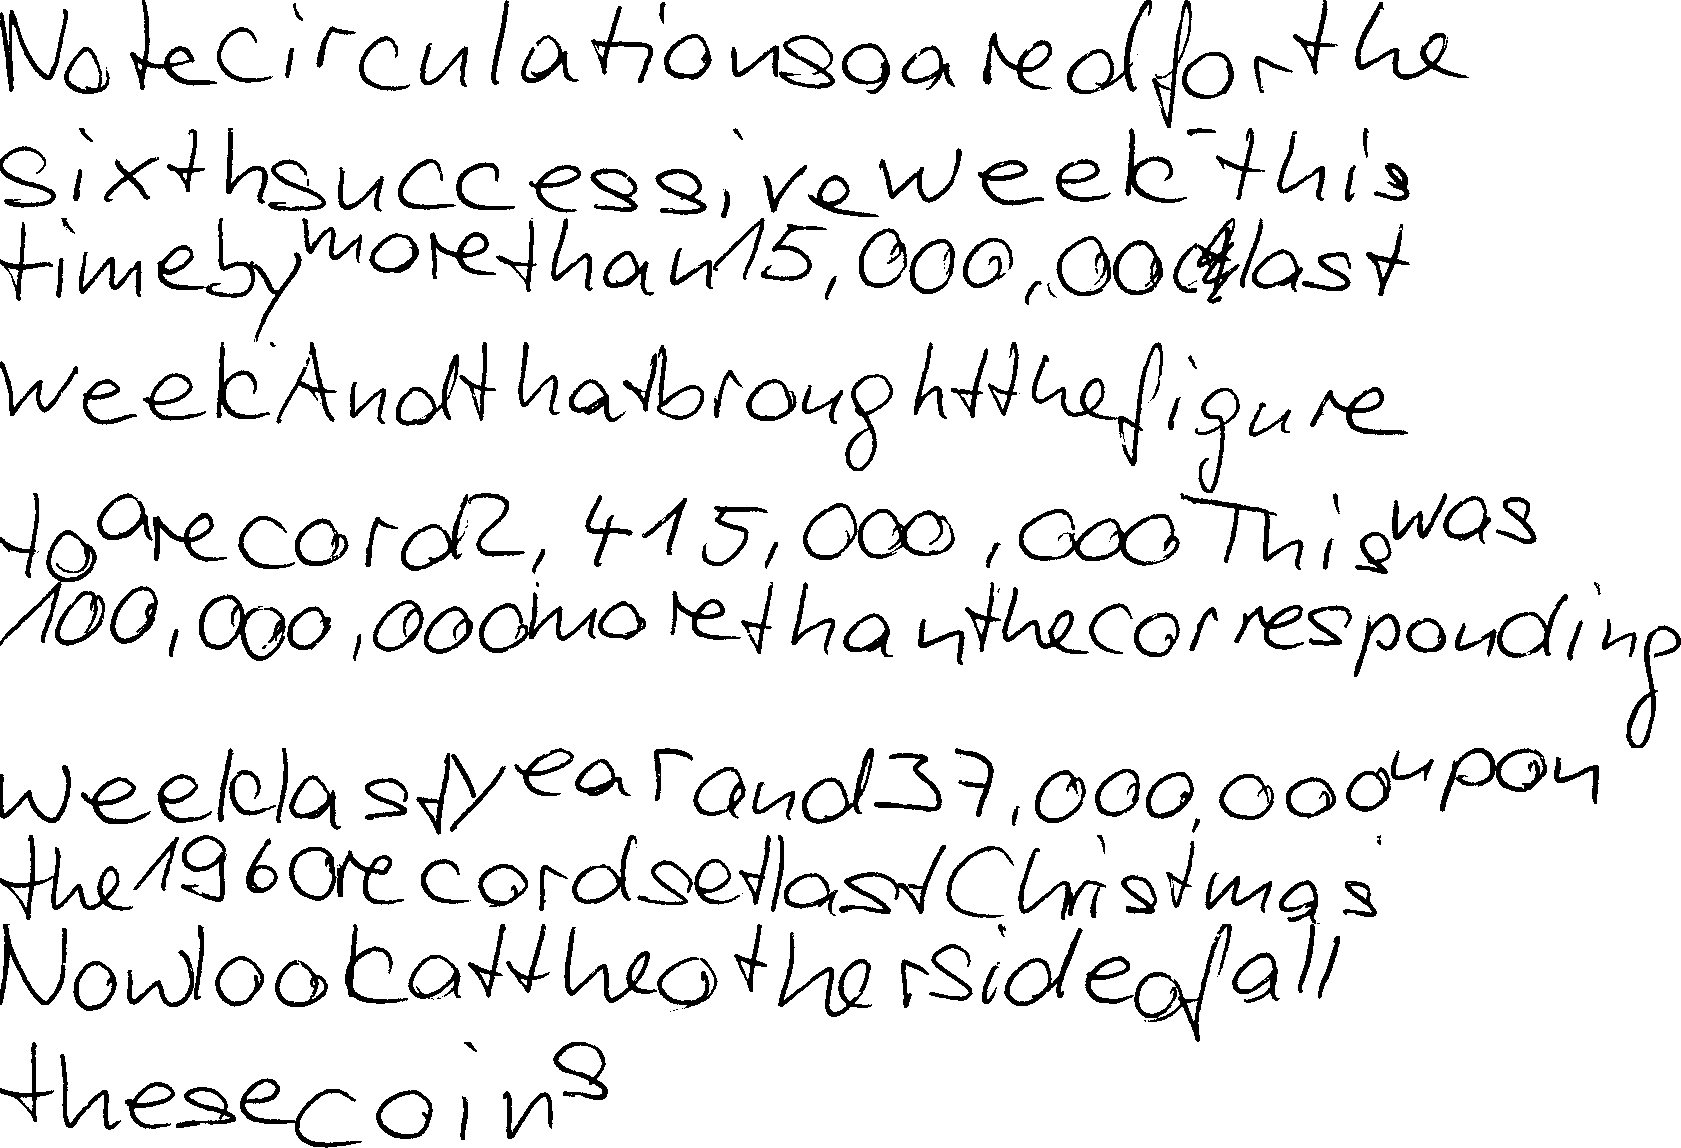 Note circulation soared for the
sixth successive week - this
time by more than 15,000,000 last
week. And that brought the figure
to a record 2,415,000,000 This was
100,000,000 more than the corresponding
week last year and 37,000,000 up on
the 1960 record set last Christmas.
Now look at the other side of all
these coins